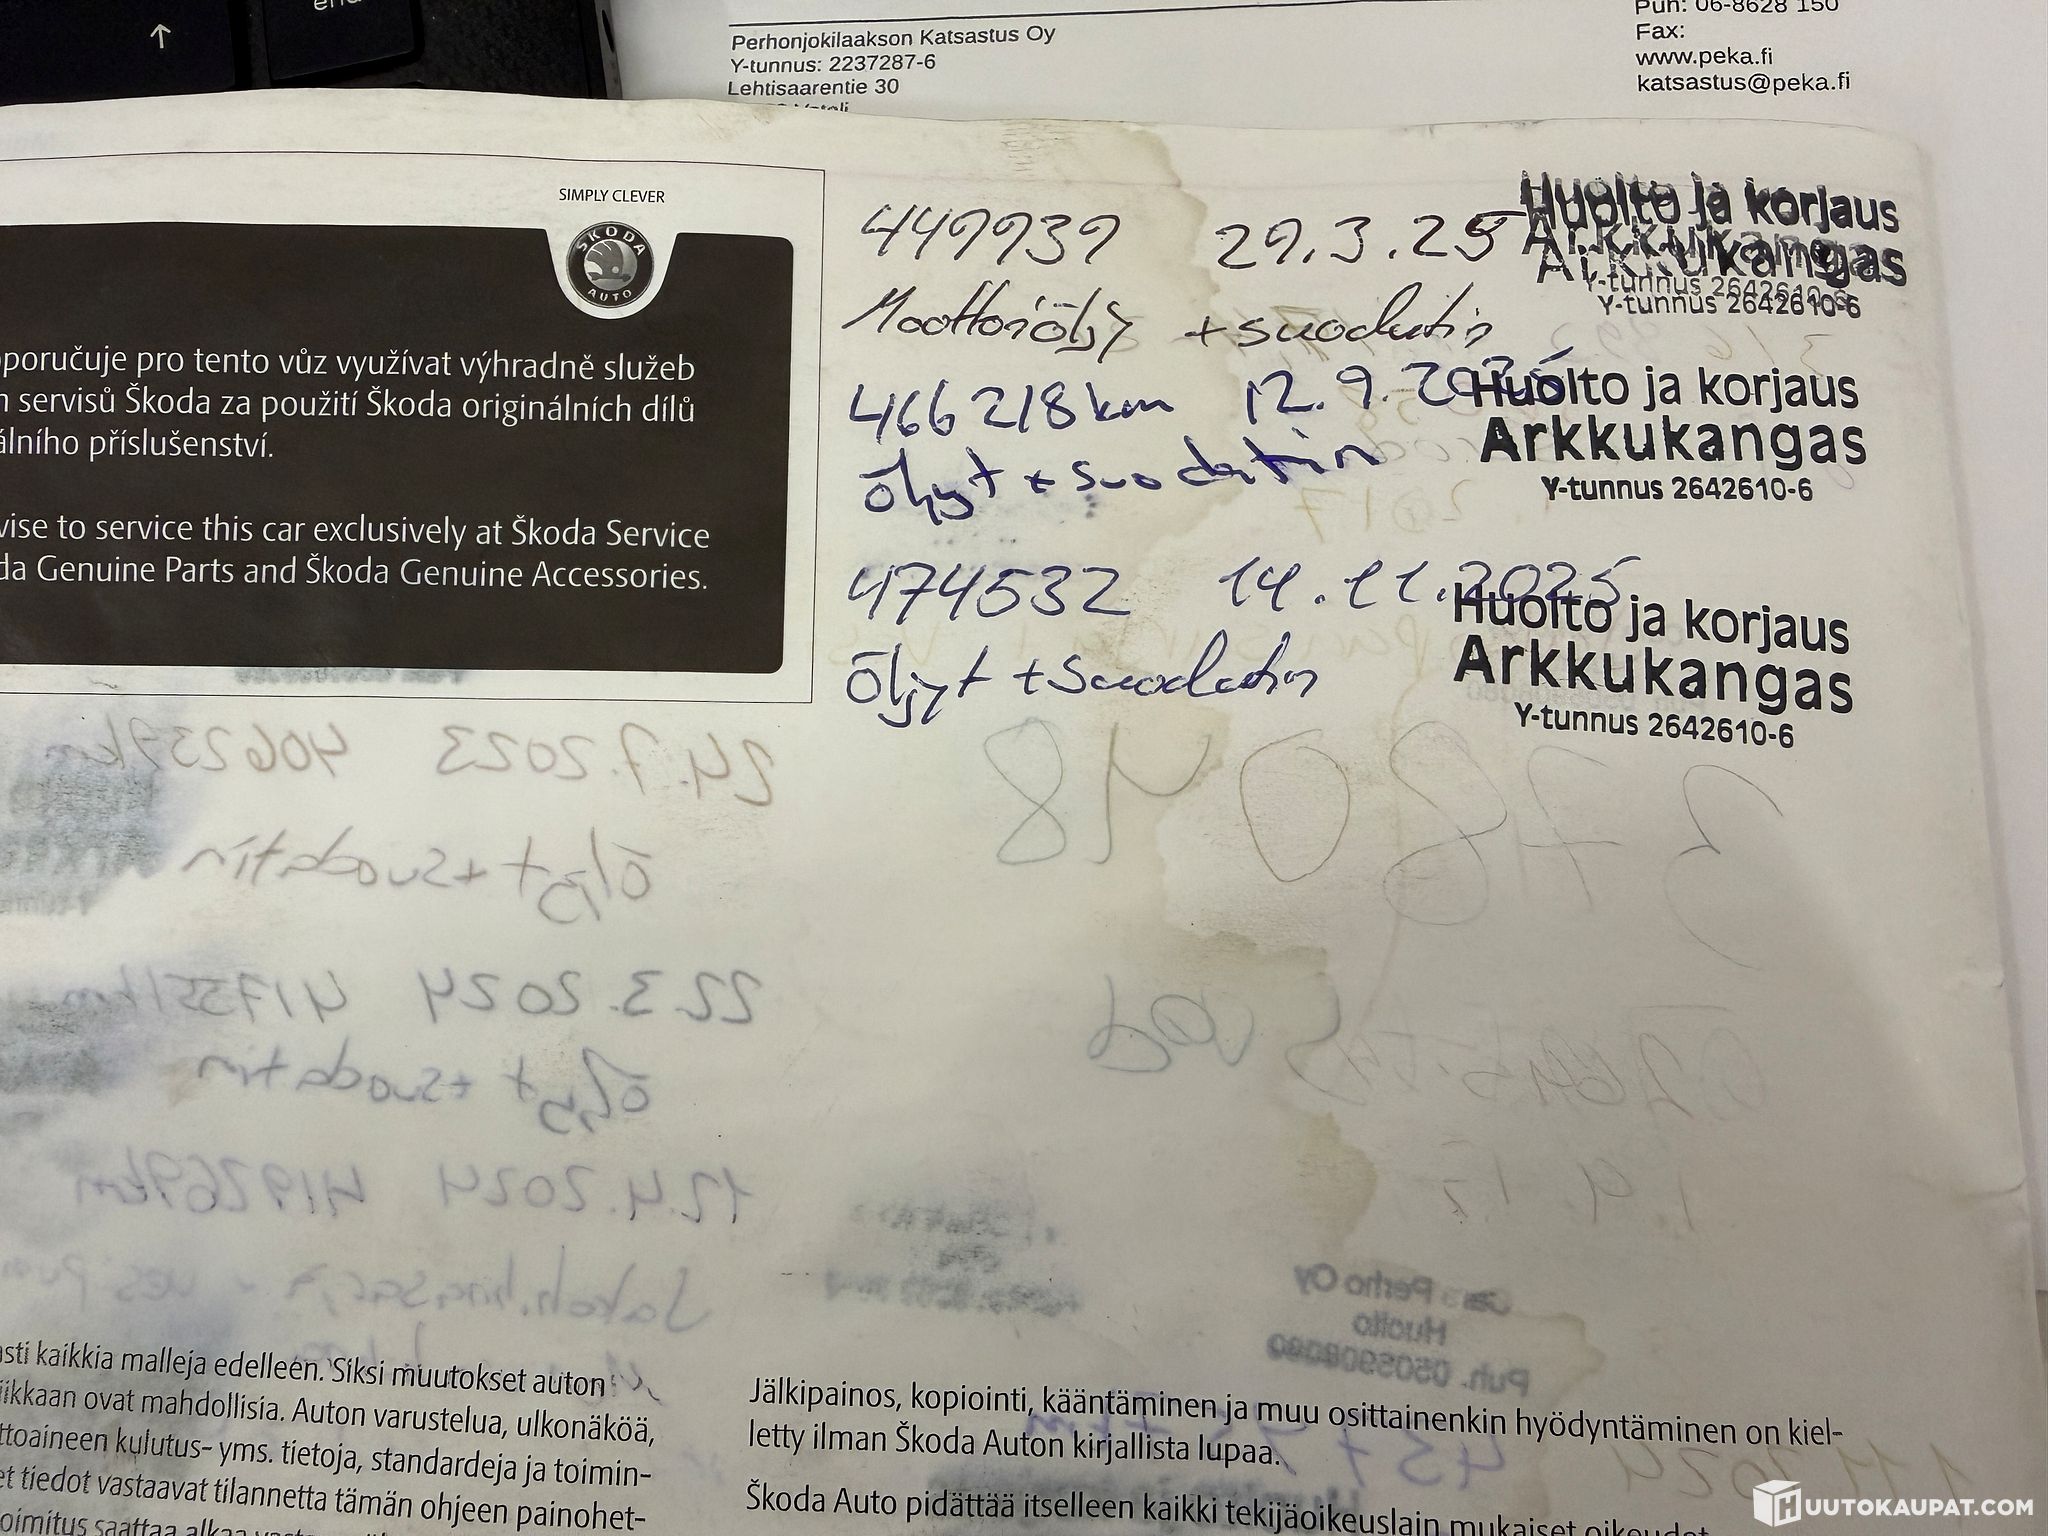 end
↑
Perhonjokilaakson Katsastus Oy
Y-tunnus: 2237287-6
Lehtisaarentie 30
Puh: 06-8628 150
Fax:
www.peka.fi
katsastus@peka.fi
SIMPLY CLEVER
SKODA
AUTO
oporučuje pro tento vůz využívat výhradně služeb
servisů Škoda za použití Škoda originálních dílů
álního příslušenství.
vise to service this car exclusively at Škoda Service
da Genuine Parts and Škoda Genuine Accessories.
449939 29.3.25
Huolto ja korjaus
Arkkukangas
Y-tunnus 2642610-6
Moottoriöljy + suodatin
466218km 12.9.2025
Huolto ja korjaus
öljyt + suodatin
Arkkukangas
Y-tunnus 2642610-6
474532 14.11.2025
Huolto ja korjaus
öljyt + suodatin
Arkkukangas
Y-tunnus 2642610-6
24.7.2023 406237km
öljyt + suodatin
22.3.2024 417351km
öljyt + suodatin
12.4.2024 419269km
Perho Oy
Huolto
Puh. 0505908080
asti kaikkia malleja edelleen. Siksi muutokset auton
iikkaan ovat mahdollisia. Auton varustelua, ulkonäköä,
ttoaineen kulutus- yms. tietoja, standardeja ja toimin-
et tiedot vastaavat tilannetta tämän ohjeen painohet-
oimitus saattaa alkaa
Jälkipainos, kopiointi, kääntäminen ja muu osittainenkin hyödyntäminen on kiel-
letty ilman Škoda Auton kirjallista lupaa.
Škoda Auto pidättää itselleen kaikki tekijäoikeuslain mukaiset oikeudet
HUUTOKAUPAT.COM